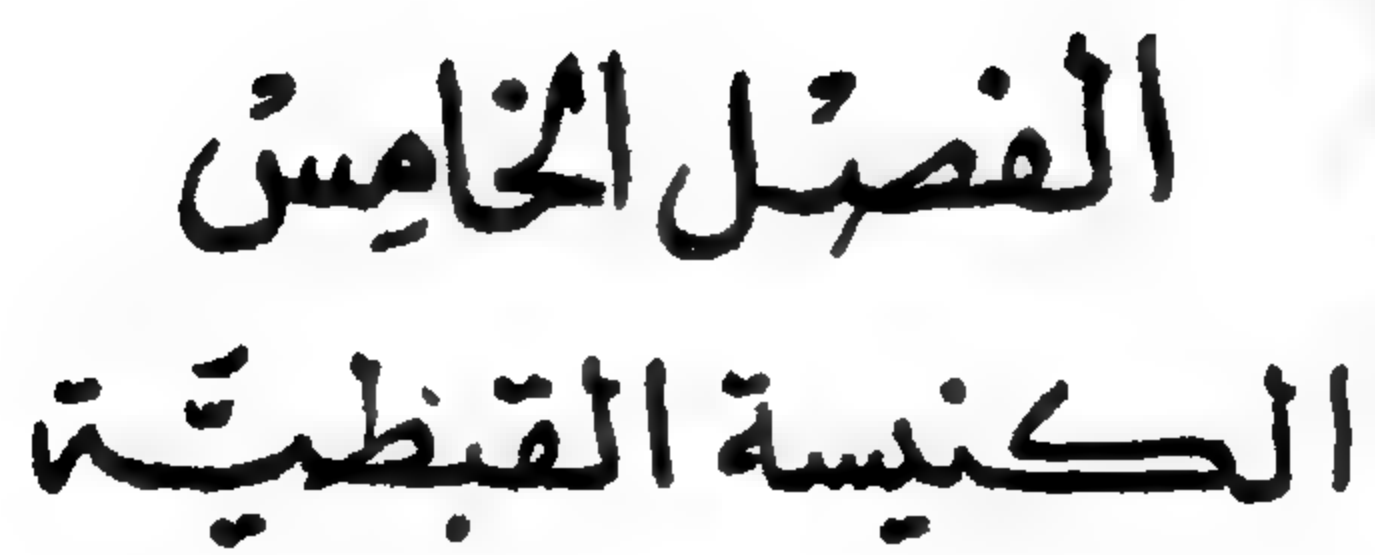 الفصل الخامِسْ
الكنيسة القبطيَّة